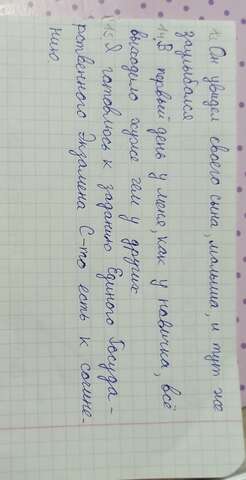 1. Он увидел своего сына, малыша, и тут же
заулыбался
14. В первый день у меня, как у новичка, всё
выходило хуже чем у других
15. Я готовлюсь к заданию Единого Госуда-
рственного Экзамена С-то есть к сочине-
нию